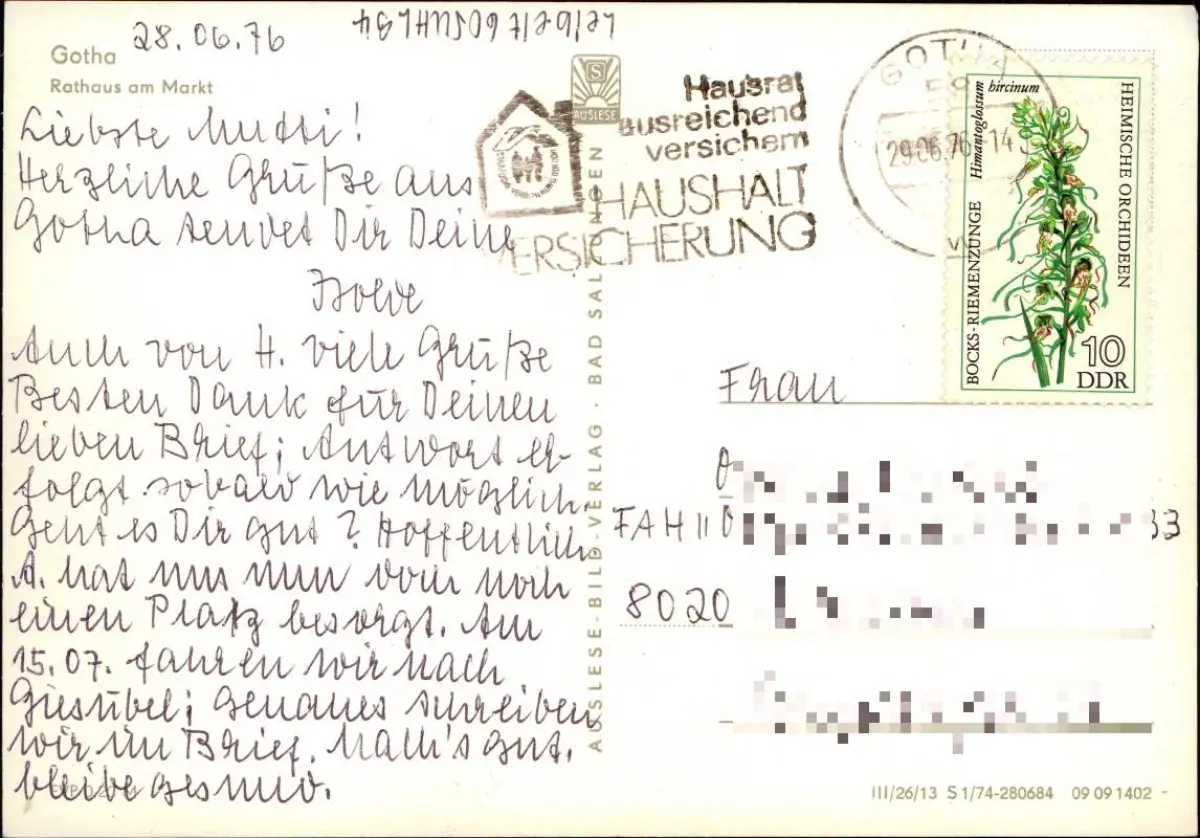 Gotha
Rathaus am Markt
28.06.76
Liebste Mutti!
Herzliche Grüße aus
Gotha sendet Dir Deine
Isolde
Auch von H. viele Grüße
Besten Dank für Deinen
lieben Brief; Antwort er-
folgt sobald wie möglich.
Geht es Dir gut? Hoffentlich.
A. hat uns nun doch noch
einen Platz besorgt. Am
15.07. fahren wir nach
Giesübel; Genaues schreiben
wir im Brief. Mach's gut,
bleibe gesund.
AUSLESE
AUSLESE-BILD-VERLAG · BAD SALZUNGEN
Hausrat
ausreichend
versichern
HAUSHALT
VERSICHERUNG
GOTHA
29.06.76-14
HEIMISCHE ORCHIDEEN
BOCKS-RIEMENZUNGE
Himantoglossum hircinum
10
DDR
Frau
8020
III/26/13 S 1/74-280684 09 09 1402